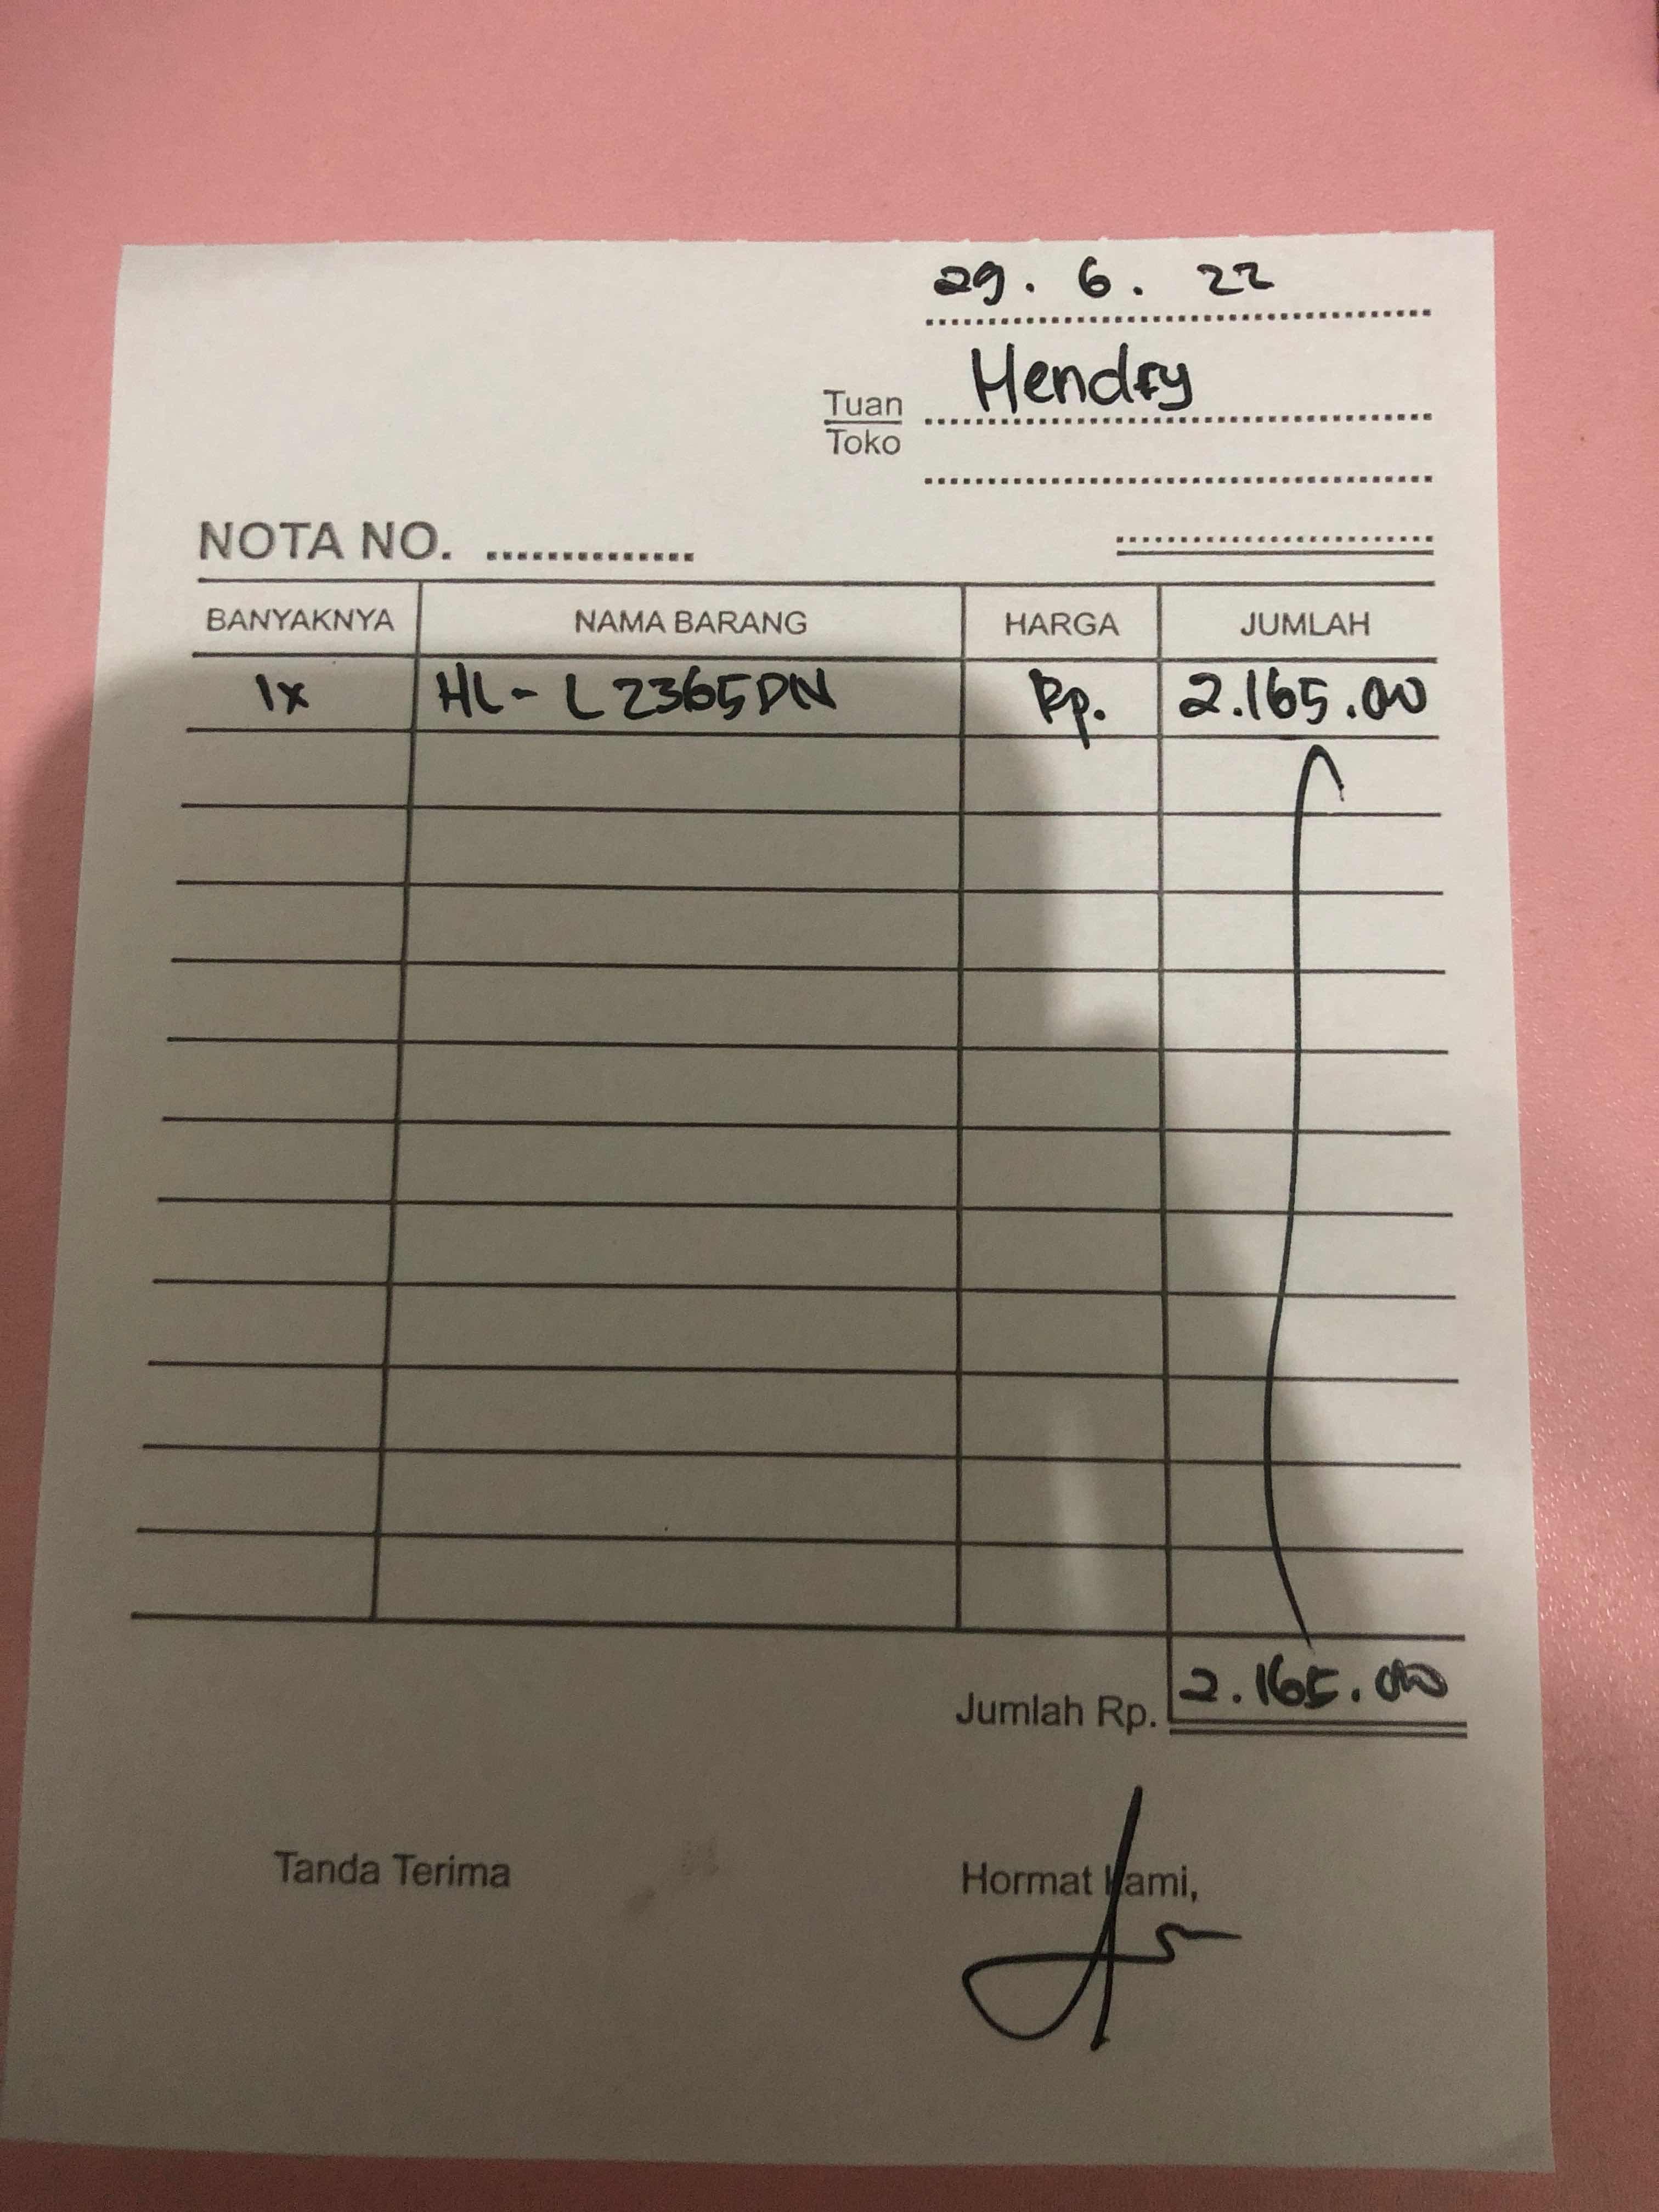 29. 6. 22
Tuan Hendry
Toko
NOTA NO. ..............
BANYAKNYA NAMA BARANG HARGA JUMLAH
1x HL-L2365DN Rp. 2.165.000
Jumlah Rp. 2.165.000
Tanda Terima Hormat Kami,